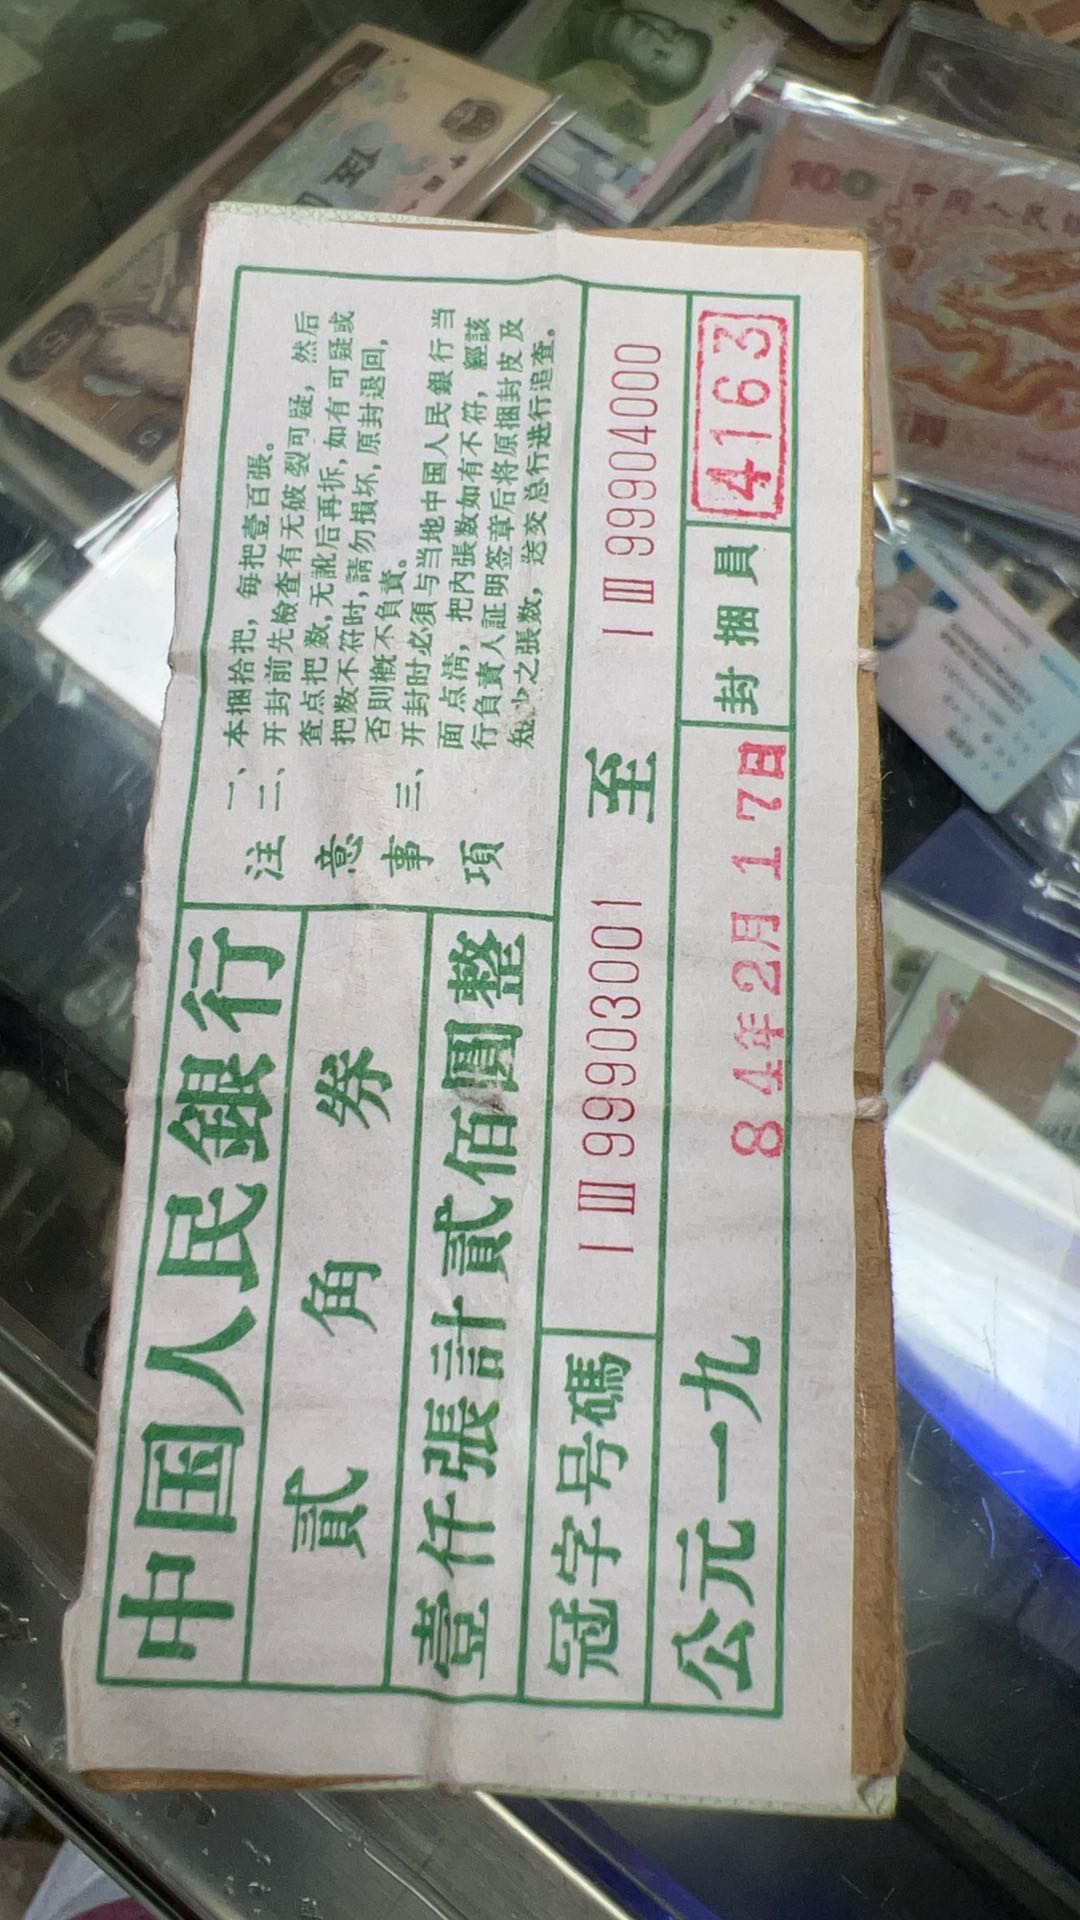 中国人民銀行
貳角券
壹仟張計貳佰圓整
注意事項
一、本捆拾把，每把壹百張。
二、开封前先檢查有无破裂可疑，然后
查点把数，无訛后再拆，如有可疑或
把数不符时，請勿損坏，原封退回，
否則概不負責。
三、开封时必須与当地中国人民銀行当
面点清，把內張数如有不符，經該
行負責人証明签章后将原捆封皮及
短少之張数，送交总行进行追查。
冠字号碼
I III 99903001 至 I III 99904000
公元一九84年2月17日
封捆員
4163
100 中国人民
伍
中国